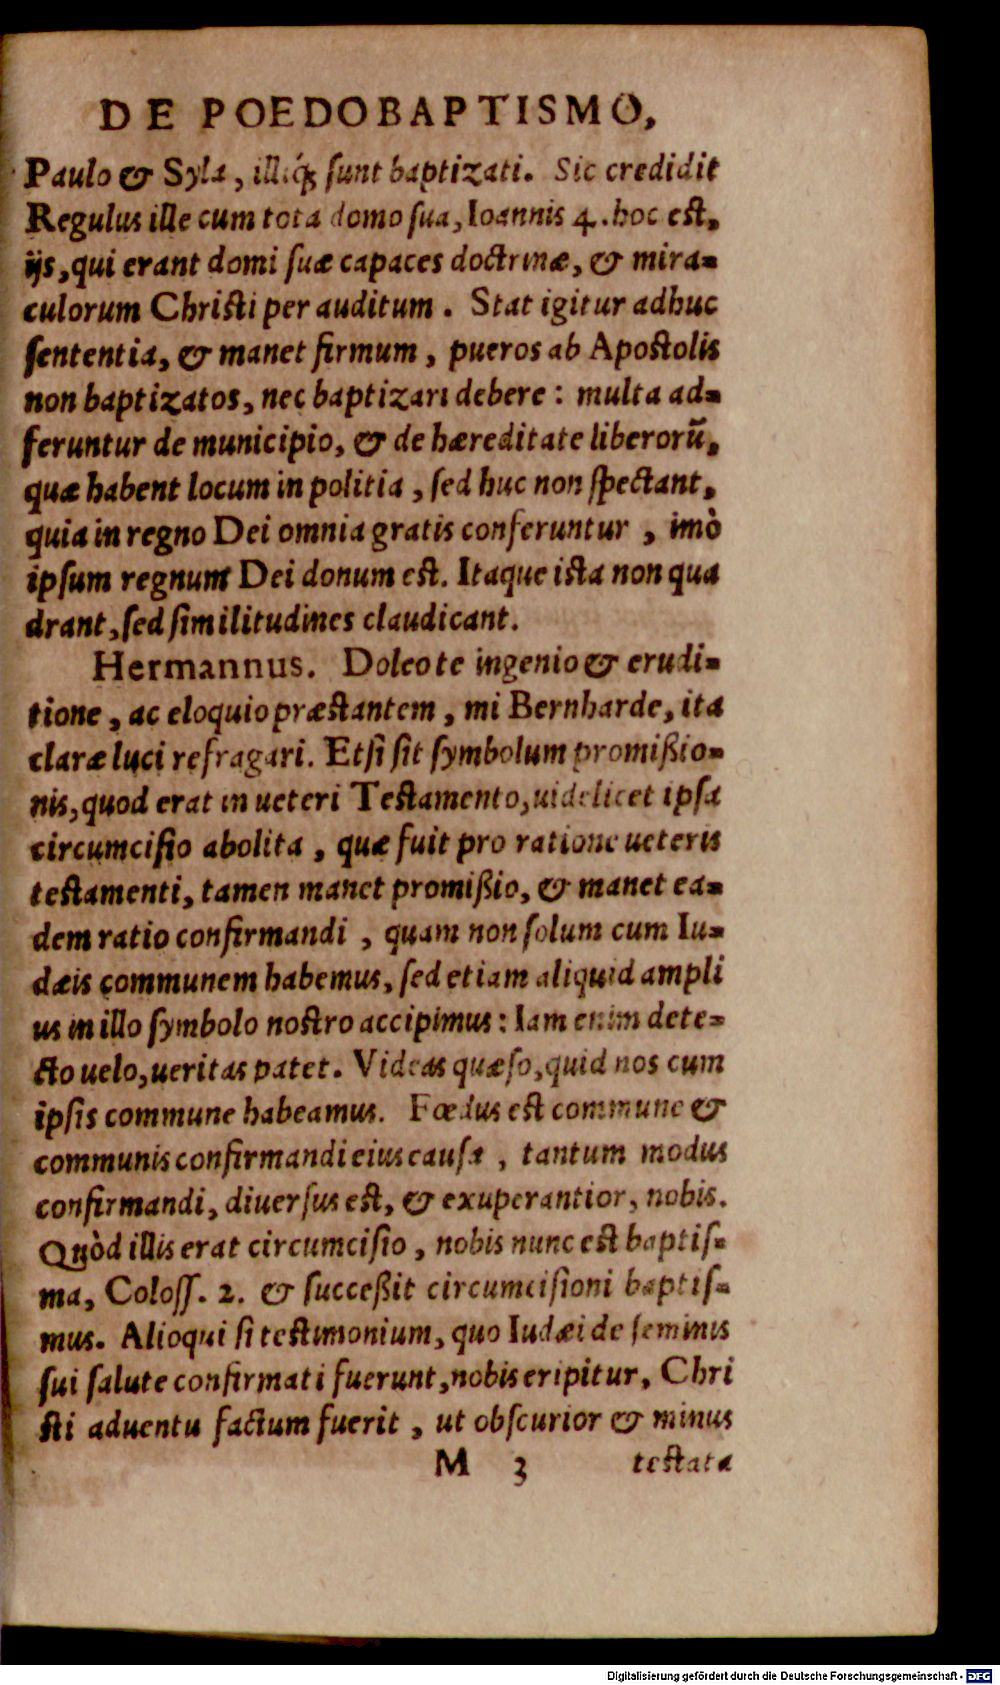 DE POEDOBAPTISMO,
Paulo & Syla, illiq́ꝫ ſunt baptizati. Sic credidit
Regulus ille cum tota domo ſua, Ioannis 4. hoc eſt,
ijs, qui erant domi ſuæ capaces doctrinæ, & mira-
culorum Chriſti per auditum. Stat igitur adhuc
ſententia, & manet firmum, pueros ab Apoſtolis
non baptizatos, nec baptizari debere: multa ad-
feruntur de municipio, & de hæreditate liberorũ,
quæ habent locum in politia, ſed huc non ſpectant,
quia in regno Dei omnia gratis conferuntur, imò
ipſum regnum Dei donum eſt. Itaque iſta non qua
drant, ſed ſimilitudines claudicant.
Hermannus. Doleo te ingenio & erudi-
tione, ac eloquio præſtantem, mi Bernharde, ita
claræ luci refragari. Etſi ſit ſymbolum promißio-
nis, quod erat in ueteri Teſtamento, uidelicet ipſa
circumciſio abolita, quæ fuit pro ratione ueteris
teſtamenti, tamen manet promißio, & manet ea-
dem ratio confirmandi, quam non ſolum cum Iu-
dæis communem habemus, ſed etiam aliquid ampli
us in illo ſymbolo noſtro accipimus: Iam enim dete-
cto uelo, ueritas patet. Videas quæſo, quid nos cum
ipſis commune habeamus. Fœdus eſt commune &
communis confirmandi eius cauſa, tantum modus
confirmandi, diuerſus eſt, & exuperantior, nobis.
Quòd illis erat circumciſio, nobis nunc eſt baptiſ-
ma, Coloſſ. 2. & ſucceßit circumciſioni baptiſ-
mus. Alioqui ſi teſtimonium, quo Iudæi de ſeminis
ſui ſalute confirmati fuerunt, nobis eripitur, Chri
ſti aduentu factum fuerit, ut obſcurior & minus
M 3 teſtata
Digitalisierung gefördert durch die Deutsche Forschungsgemeinschaft - DFG